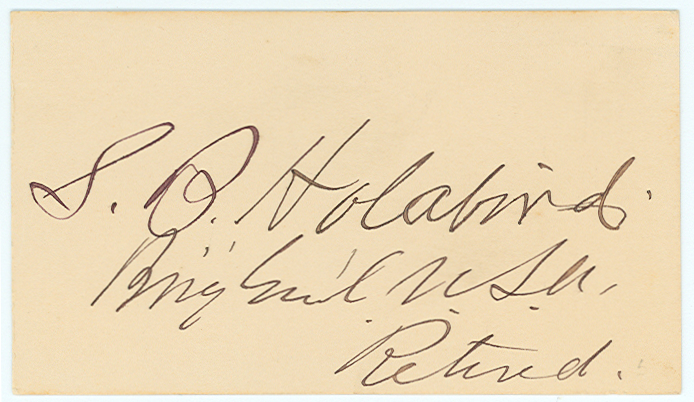 S. B. Holabird.
Brig Gen'l U.S.A.
Retired.